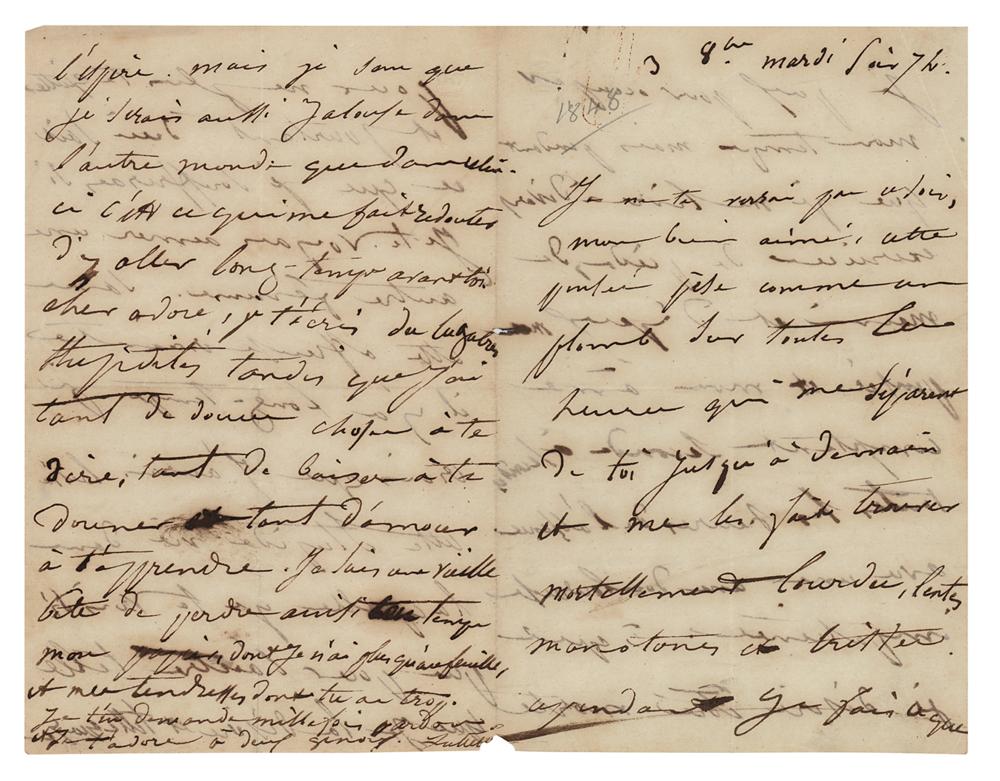 3 8bre mardi soir 7h.
1848
Je ne te verrai pas ce soir,
mon bien aimé, cette
pensée pèse comme un
plomb sur toutes les
heures qui me séparent
de toi jusqu'à demain
et me les fait trouver
mortellement lourdes, lentes,
monotones et tristes.
cependant je fais ce que
l'espère. mais je sens que
je serais aussi jalouse dans
l'autre monde que dans celui-
ci c'est ce qui me fait redouter
d'y aller long-temps avant toi
cher adoré, je t'écris des lugubres
stupidités tandis que j'ai
tant de douces choses à te
dire, tant de baisers à te
donner et tant d'amour
à t'apprendre. Je suis une vieille
bête de perdre ainsi ton temps
mon papier, dont je n'ai plus qu'une feuille,
et mes tendresses dont tu as trop.
Je t'en demande mille fois pardon
et je t'adore à deux genoux. Juliette